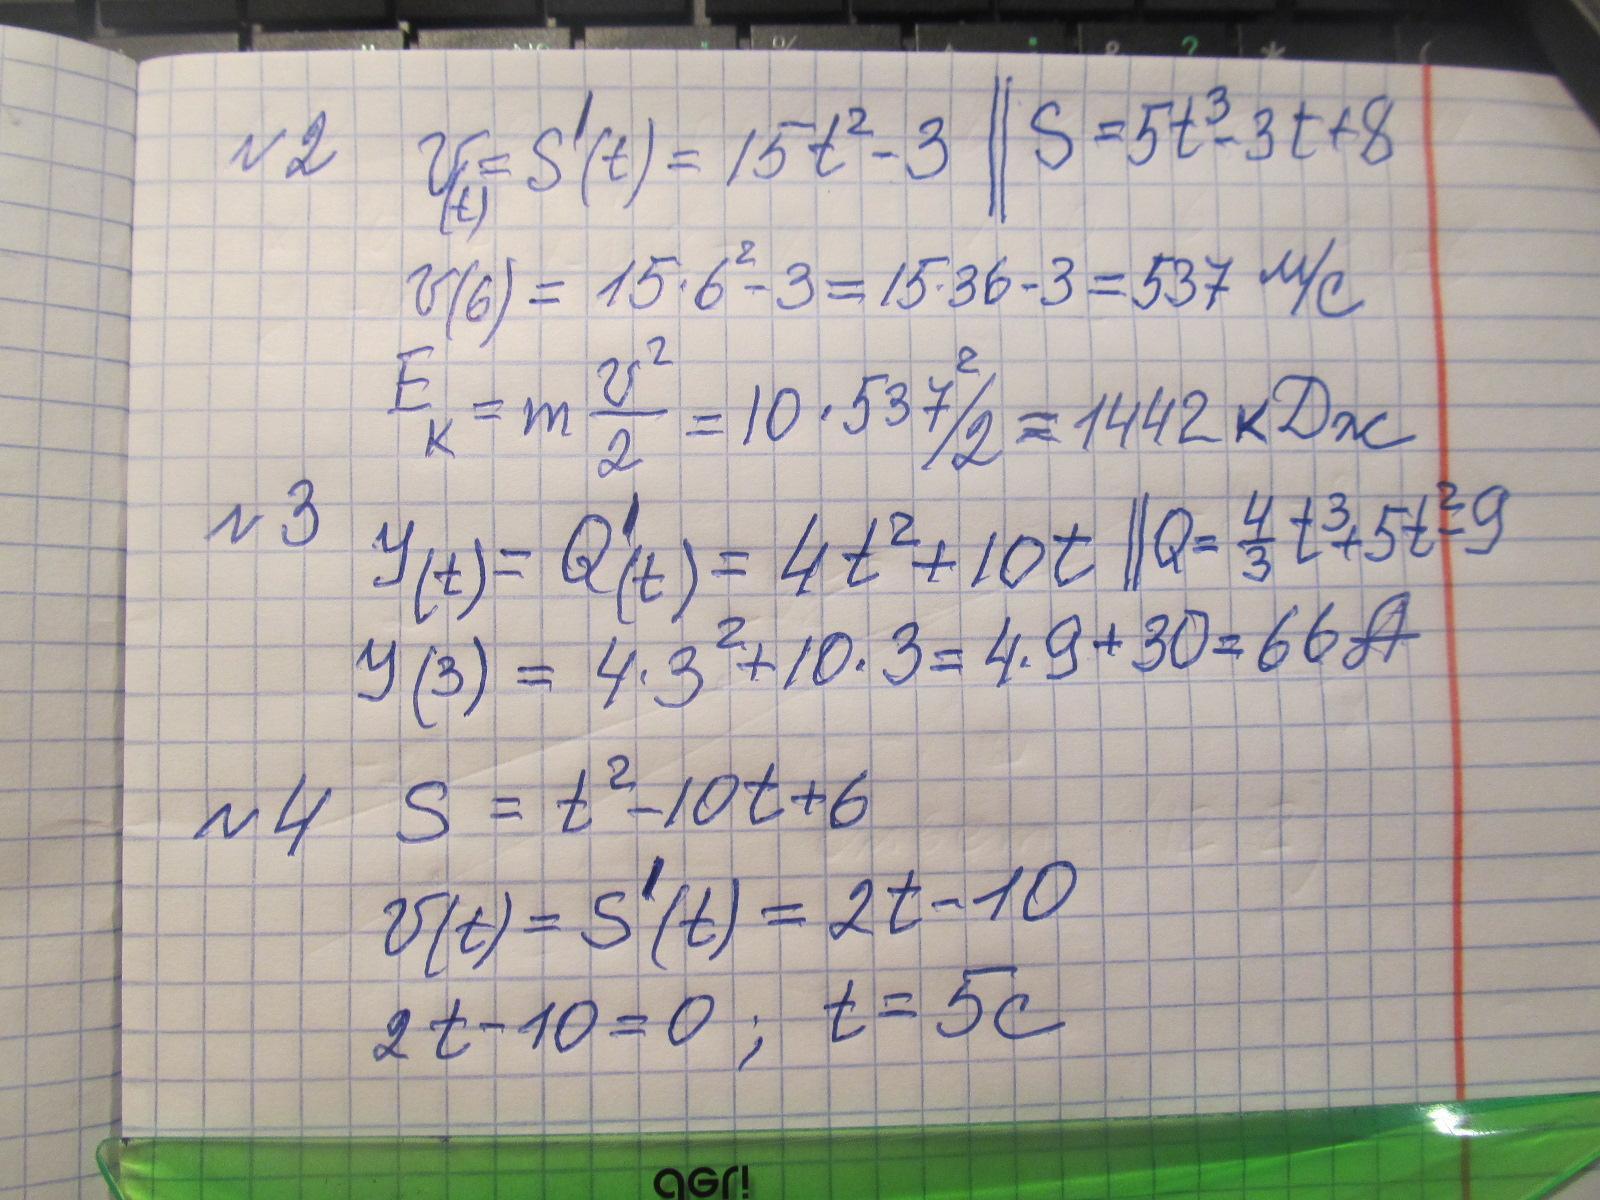 №2 v(t) = S'(t) = 15t² - 3 || S = 5t³ - 3t + 8
v(6) = 15·6² - 3 = 15·36 - 3 = 537 м/с
Eк = m v²/2 = 10·537²/2 = 1442 кДж
№3 У(t) = Q'(t) = 4t² + 10t || Q = 4/3 t³ + 5t² - 9
У(3) = 4·3² + 10·3 = 4·9 + 30 = 66 А
№4 S = t² - 10t + 6
v(t) = S'(t) = 2t - 10
2t - 10 = 0 ; t = 5с
agr!